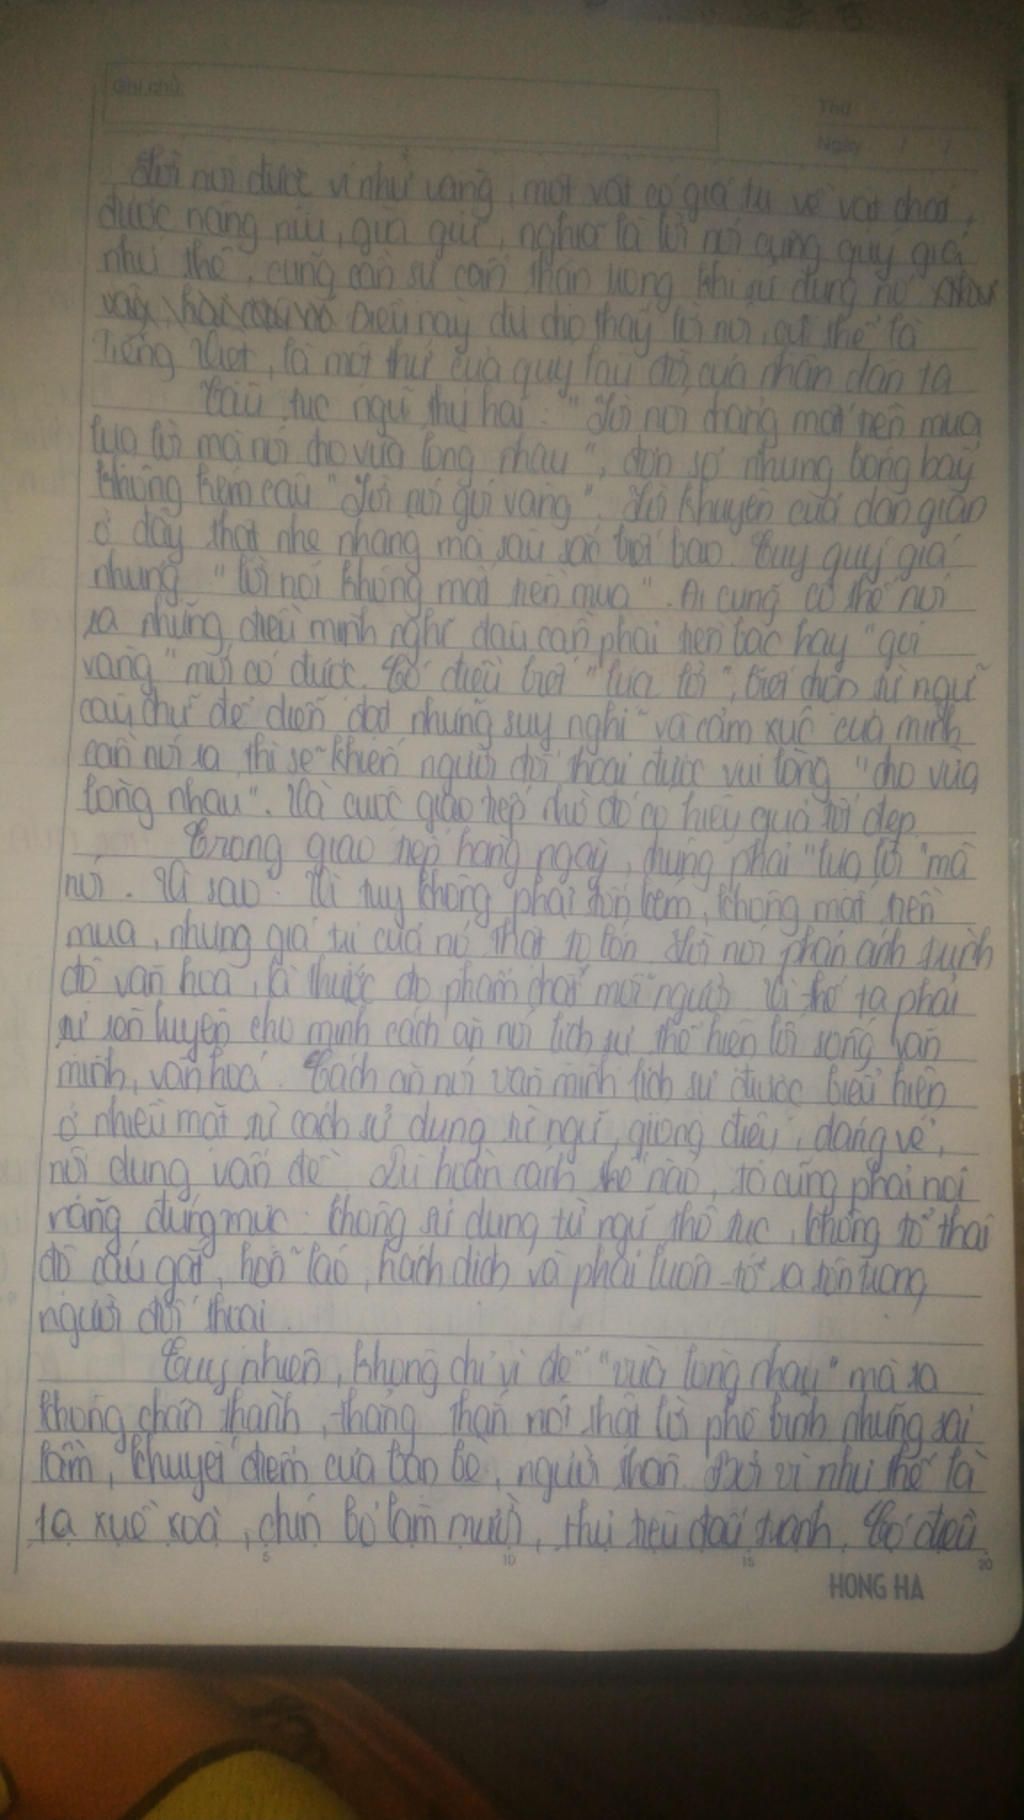 Ghi chú:
Thứ
Ngày / /
Lời nói được ví như vàng, một vật có giá trị về vật chất,
được nâng niu, gìn giữ, nghĩa là lời nói cũng quý giá
như thế, cũng cần sự cẩn thận trong khi sử dụng nó
Điều này đủ cho thấy lời nói, cụ thể là
Tiếng Việt, là một thứ của quý lâu đời của nhân dân ta
Câu tục ngữ thứ hai: "Lời nói chẳng mất tiền mua
Lựa lời mà nói cho vừa lòng nhau", đơn sơ nhưng bóng bẩy
không kém câu "Lời nói gói vàng". Lời khuyên của dân gian
ở đây thật nhẹ nhàng mà sâu sắc biết bao. Tuy quý giá
nhưng "lời nói không mất tiền mua". Ai cũng có thể nói
ra những điều mình nghĩ đâu cần phải tiền bạc hay "gói
vàng" mới có được. Có điều biết "lựa lời", biết chọn từ ngữ
câu chữ để diễn đạt những suy nghĩ và cảm xúc của mình
cần nói ra thì sẽ khiến người đối thoại được vui lòng "cho vừa
lòng nhau". Và cuộc giao tiếp nhờ đó có hiệu quả tốt đẹp.
Trong giao tiếp hàng ngày, chúng phải "lựa lời" mà
nói. Vì sao. Vì tuy không phải tốn kém, không mất tiền
mua, nhưng giá trị của nó thật to lớn. Lời nói phản ánh trình
độ văn hoá, là thước đo phẩm chất mỗi người. Vì thế ta phải
tự rèn luyện cho mình cách ăn nói lịch sự thể hiện lối sống văn
minh, văn hoá. Cách ăn nói văn minh lịch sự được biểu hiện
ở nhiều mặt từ cách sử dụng từ ngữ, giọng điệu, dáng vẻ,
nội dung vấn đề. Dù hoàn cảnh thế nào, ta cũng phải nói
năng đúng mực: không sử dụng từ ngữ thô tục, không tỏ thái
độ cáu gắt, hỗn láo, hách dịch và phải luôn tỏ ra tôn trọng
người đối thoại.
Tuy nhiên, không chỉ vì để "vừa lòng nhau" mà ta
không chân thành, thẳng thắn nói thật lời phê bình những sai
lầm, khuyết điểm của bạn bè, người thân. Bởi vì như thế là
ta xuề xoà, chín bỏ làm mười, thủ tiêu đấu tranh. Có điều
5 10 15 20
HONG HA